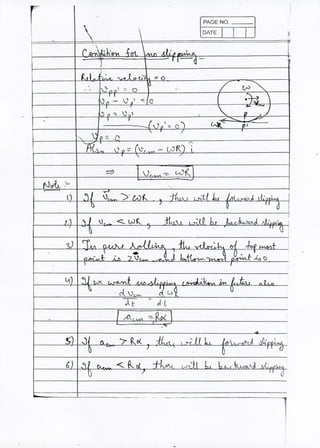 PAGE NO.
DATE
Condition for no slipping
Relative velocity = 0.
∴ Vpp' = 0
ω
Vp - Vp' = 0
Vcm
Vp = Vp'
P
(Vp' = 0)
ωR
P'
Vp = 0
Also Vp = (Vcm - ωR) î
⇒ Vcm = ωR
Note :-
1) If Vcm > ωR, there will be forward slipping
2) If Vcm < ωR, there will be backward slipping
3) In pure rolling, the velocity of top most
point is 2Vcm and bottom most point is 0.
4) If we want no slipping condition in future also
dVcm/dt = dωR/dt
acm = Rα
5) If acm > Rα, there will be forward slipping
6) If acm < Rα, there will be backward slipping